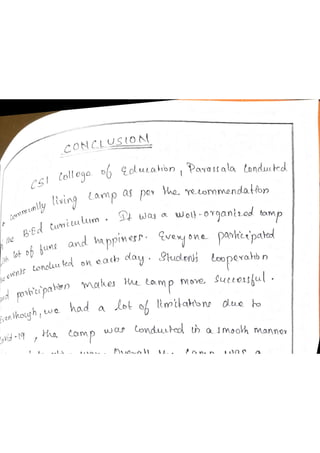 CONCLUSION
CSI College of Education, Parassala Conducted
a community living camp as per the recommendation
the B.Ed curriculum. It was a well-organized camp
lot of funs and happiness. Every one participated
events conducted on each day. Student cooperation
and participation makes the camp more successful.
Eventhough, we had a lot of limitations due to
Covid-19, the camp was conducted in a smooth manner
Overall the camp was a